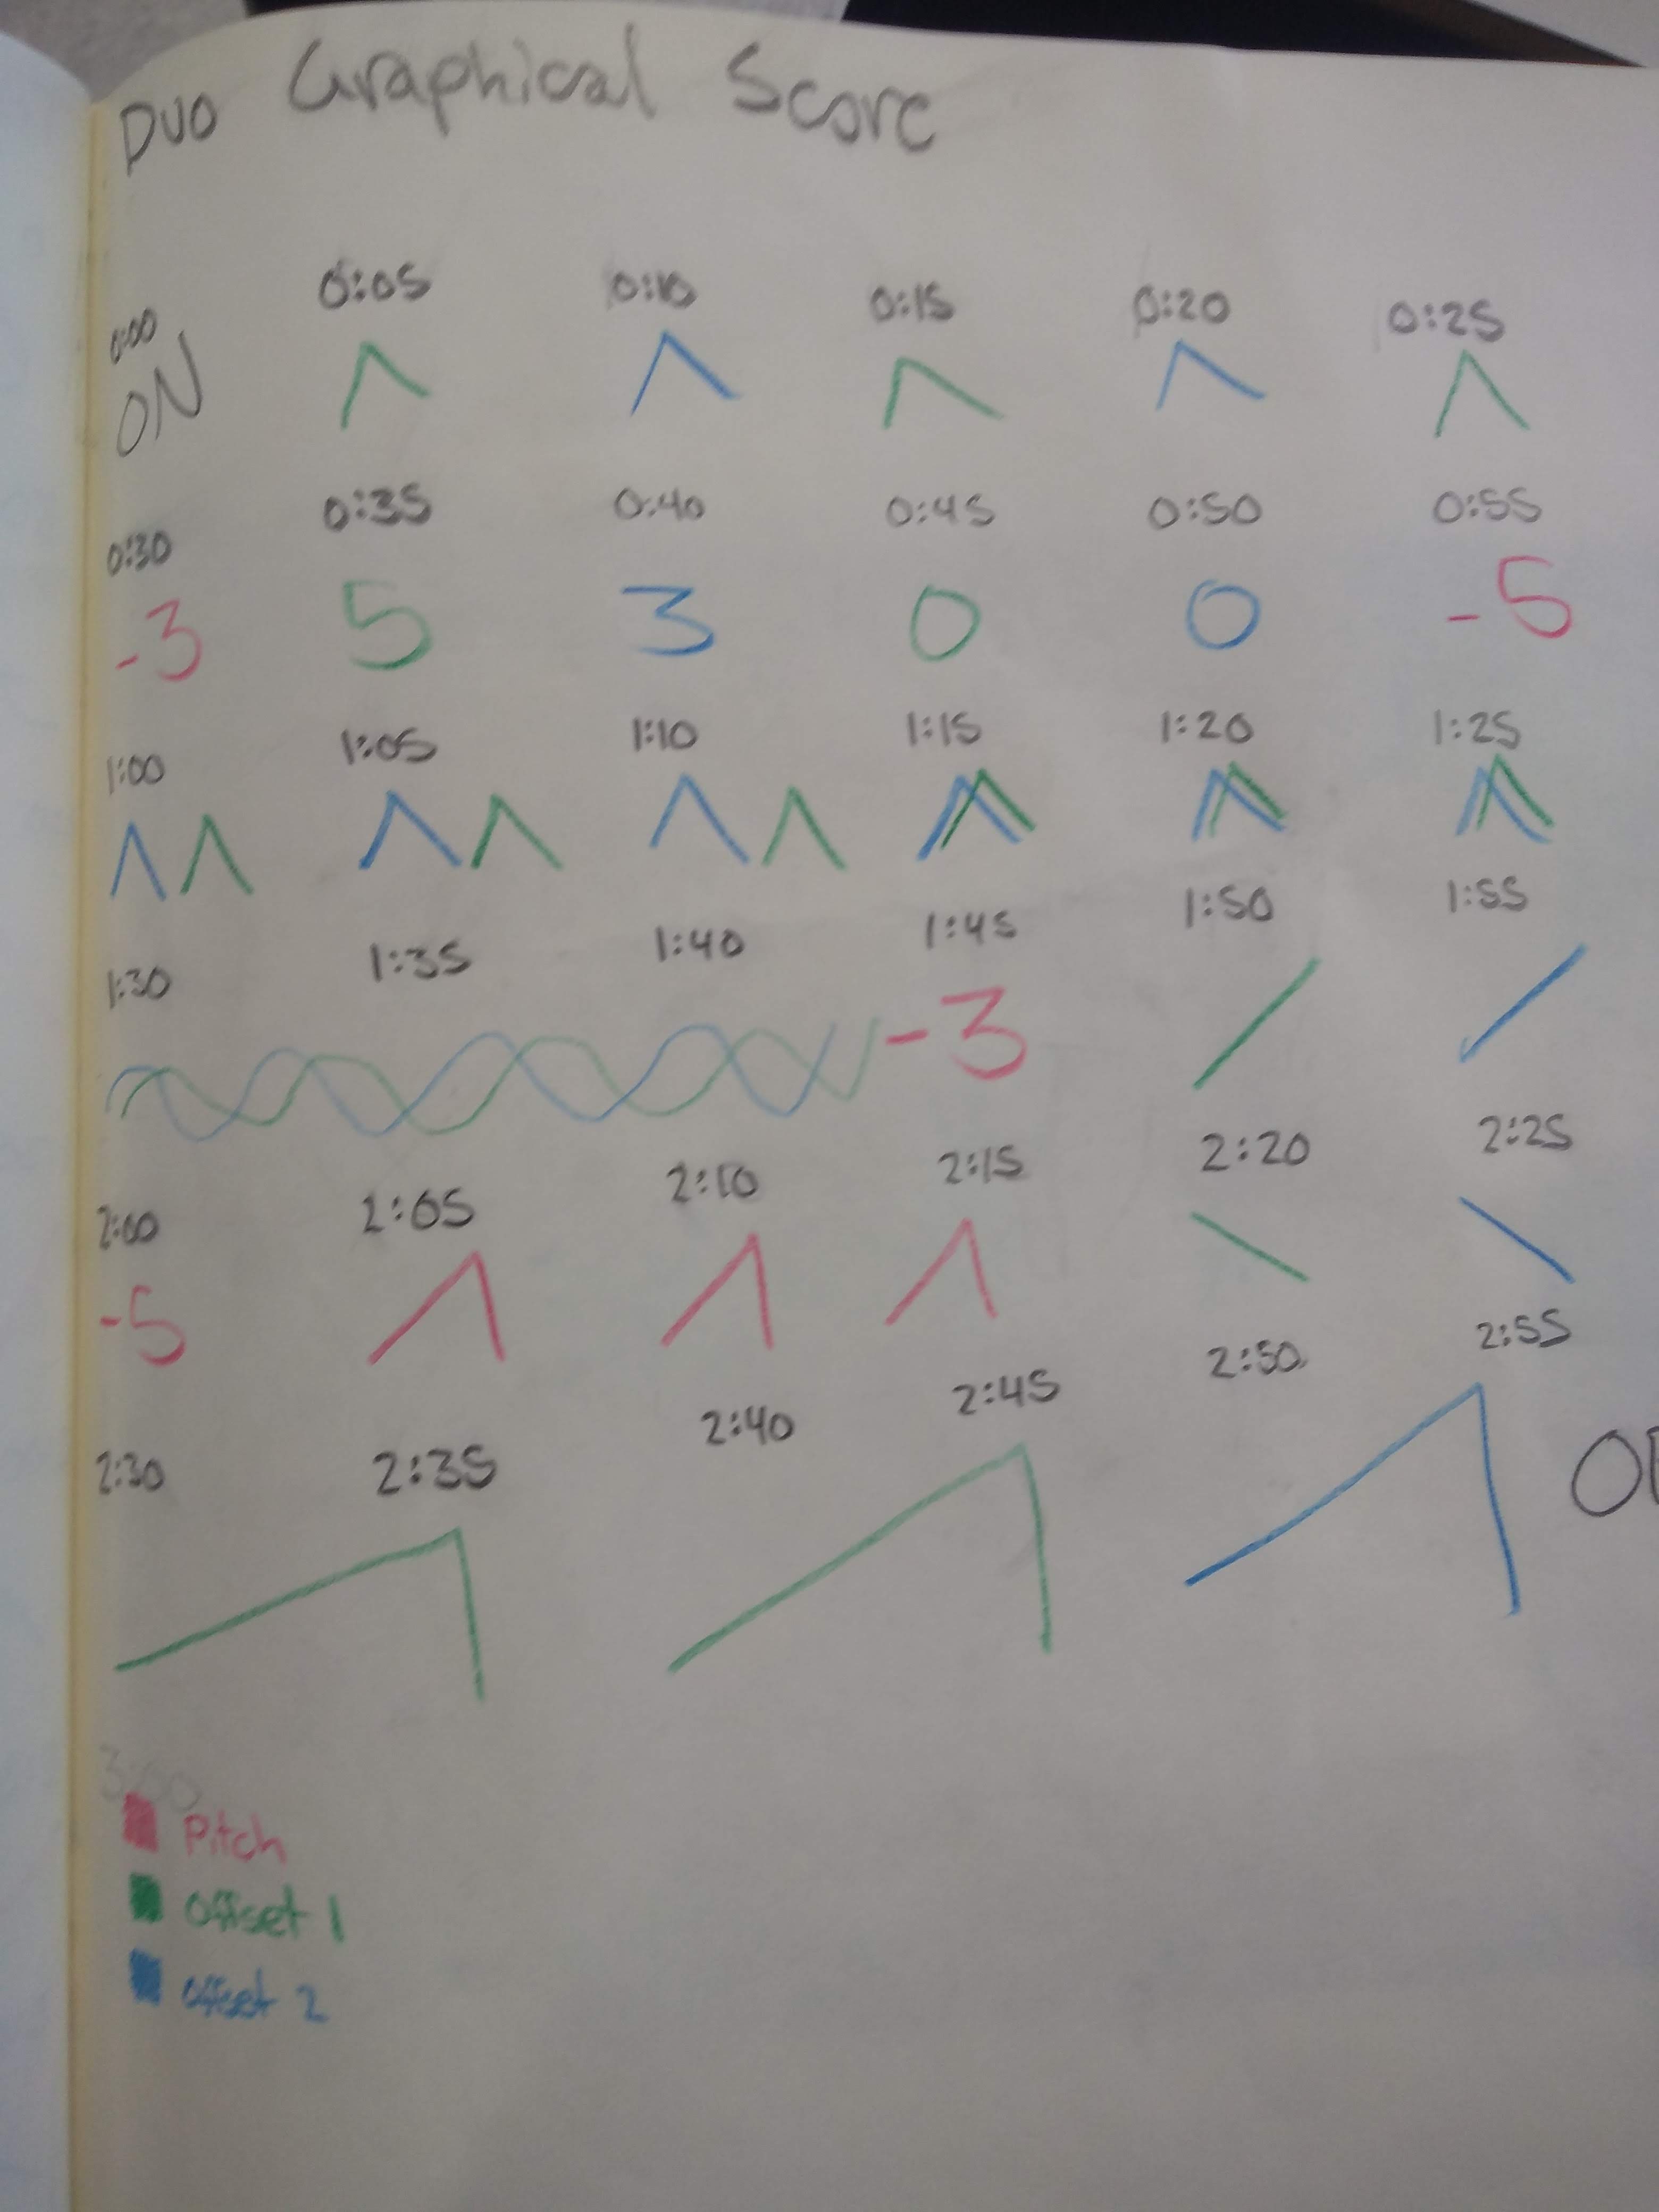 DUO Graphical Score
0:00 0:05 0:10 0:15 0:20 0:25
ON
0:30 0:35 0:40 0:45 0:50 0:55
-3 5 3 0 0 -5
1:00 1:05 1:10 1:15 1:20 1:25
1:30 1:35 1:40 1:45 1:50 1:55
-3
2:00 2:05 2:10 2:15 2:20 2:25
-5
2:30 2:35 2:40 2:45 2:50 2:55
3:00
Pitch
Offset 1
Offset 2